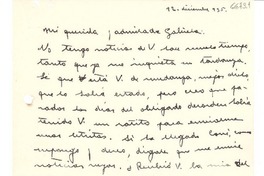 12. diciembre 935. 66731
Mi querida y admirada Gabriela:
No tengo noticias de V. hace mucho tiempo,
tanto que ya me inquieta su tardanza.
Se que está V. de mudanza, mejor dicho
que lo habrá estado, pero creo que pa-
sados los días del obligado desorden habrá
tenido V. un ratito para enviarme
unas letritas. Si ha llegado Coni, como
supongo y deseo, dígale que me envíe
noticias suyas. ¿Recibió V. la mía del